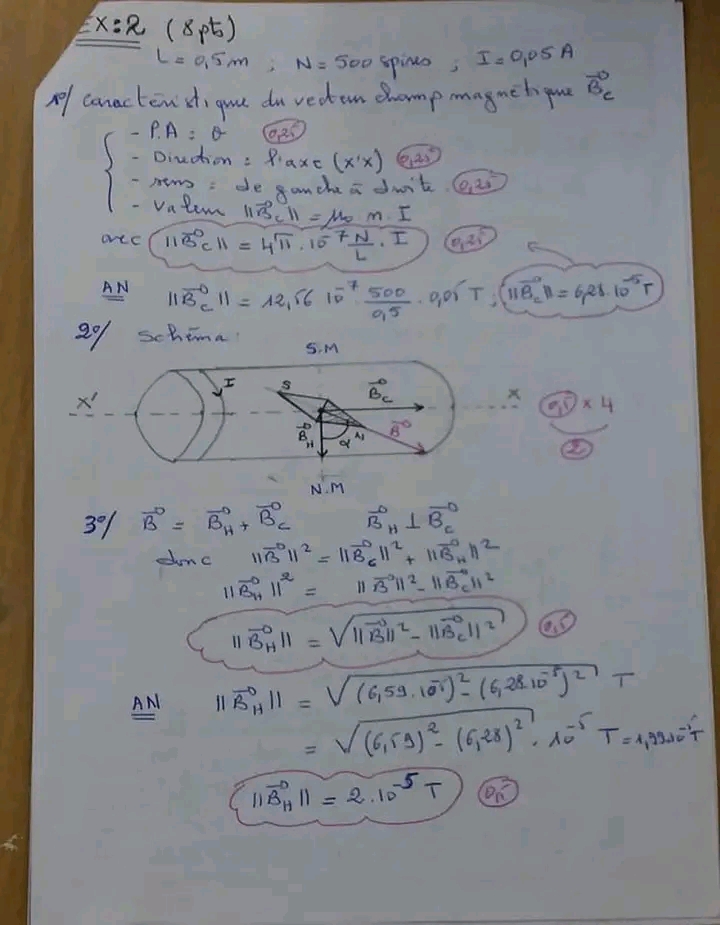 EX:2 (8pts)
L = 0,5m ; N = 500 spires ; I = 0,05 A
1°/ caractéristique du vecteur champ magnétique B⃗c
- P.A : O 0,25
- Direction : l'axe (x'x) 0,25
- sens : de gauche à droite. 0,25
- Valeur ||B⃗c|| = μ₀ n. I
avec ||B⃗c|| = 4π . 10⁻⁷ N/L . I 0,25
AN ||B⃗c|| = 12,56 10⁻⁷ . 500/0,5 . 0,05 T ; ||B⃗c|| = 6,28.10⁻⁵ T
2°/ Schéma:
S.M
I
S
B⃗c
x'
x
0,5 x 4
B⃗H
α
N
B⃗
2
N.M
3°/ B⃗ = B⃗H + B⃗c B⃗H ⊥ B⃗c
donc ||B⃗||² = ||B⃗c||² + ||B⃗H||²
||B⃗H||² = ||B⃗||² - ||B⃗c||²
||B⃗H|| = √(||B⃗||² - ||B⃗c||²) 0,5
AN ||B⃗H|| = √((6,59.10⁻⁵)² - (6,28.10⁻⁵)²) T
= √((6,59)² - (6,28)²) . 10⁻⁵ T = 1,99.10⁻⁵ T
||B⃗H|| = 2.10⁻⁵ T 0,5